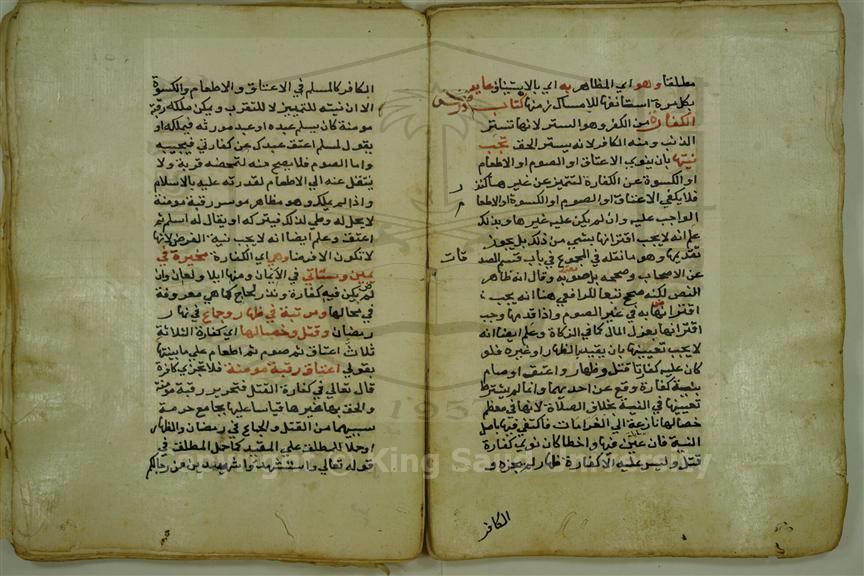 مطلقا وهو اي المظاهر به اي بالاستيناف عايد
بكل مرة استانفها للامساك زمنها كتاب
الكفارة من الكفر وهو الستر لانها تستر
الذنب ومنه الكافر لانه يستر الحق تجب
نيتها بان ينوي الاعتاق او الصوم او الاطعام
او الكسوة عن الكفارة لتتميز عن غيرها كنذر
فلا يكفي الاعتاق او الصوم او الكسوة او الاطعام
الواجب عليه وان لم يكن عليه غيرها وبذلك
علم انه لا يجب اقترانها بشي من ذلك بل يجوز
تقديمها وهو ما نقله في المجموع في باب قسم الصد
قات
عن الاصحاب وصححه بل صوبه وقال انه ظاهر
النص لكنه صحح تبعا للرافعي هنا انه يجب
اقترانها به في غير الصوم واذا قدمها وجب
اقترانها بعزل المال كما في الزكاة وعلم ايضا انه
لا يجب تعيينها بان يقيد بالظهار او غيره فلو
كان عليه كفارتا قتل وظهار واعتق او صام
بنية كفارة وقع عن احديهما وانما لم يشترط
تعيينها في النية بخلاف الصلاة لانها في معظم
خصالها نازعة الي الغرامات فاكتفي فيها باصل
النية فان عين فيها واخطا كان نوي كفارة
قتل وليس عليه الا كفارة ظهار لم يجزه و
الكافر
الكافر كالمسلم في الاعتاق والاطعام والكسوة
الا ان نيته للتمييز لا للتقرب ويمكن ملكه رقبة
مومنة كان يسلم عبده او عبد مورثه فيملكه او
يقول لمسلم اعتق عبدك عن كفارتي فيجيبه
واما الصوم فلا يصح منه لتمحضه قربة ولا
ينتقل عنه الي الاطعام لقدرته عليه بالاسلام
واذا لم يملك وهو مظاهر موسر رقبة مومنة
لا يحل له وطي لذلك فيتركه او يقال له اسلم ثم
اعتق وعلم ايضا انه لا يجب نية الفرض لانها
لا تكون الا فرضا وهي اي الكفارة مخيرة في
يمين وستاتي في الايمان ومنها ايلا ولعان وان
لم يكن فيه كفارة ونذر لجاج كما هي معروفة
في محالها ومرتبة في ظهار وجماع في نهار
رمضان وقتل وخصالها اي كفارة الثلاثة
ثلاث اعتاق ثم صوم ثم اطعام علي ما بينتها
بقولي اعتاق رقبة مومنة فلا تجزي كافرة
قال تعالي في كفارة القتل فتحرير رقبة مومنة
والحق بها غيرها قياسا عليها بجامع حرمة
سببيهما من القتل والجماع في رمضان والظهار
او حملا للمطلق علي المقيد كما حمل المطلق في
قوله تعالي واستشهدوا شهيدين من رجالكم